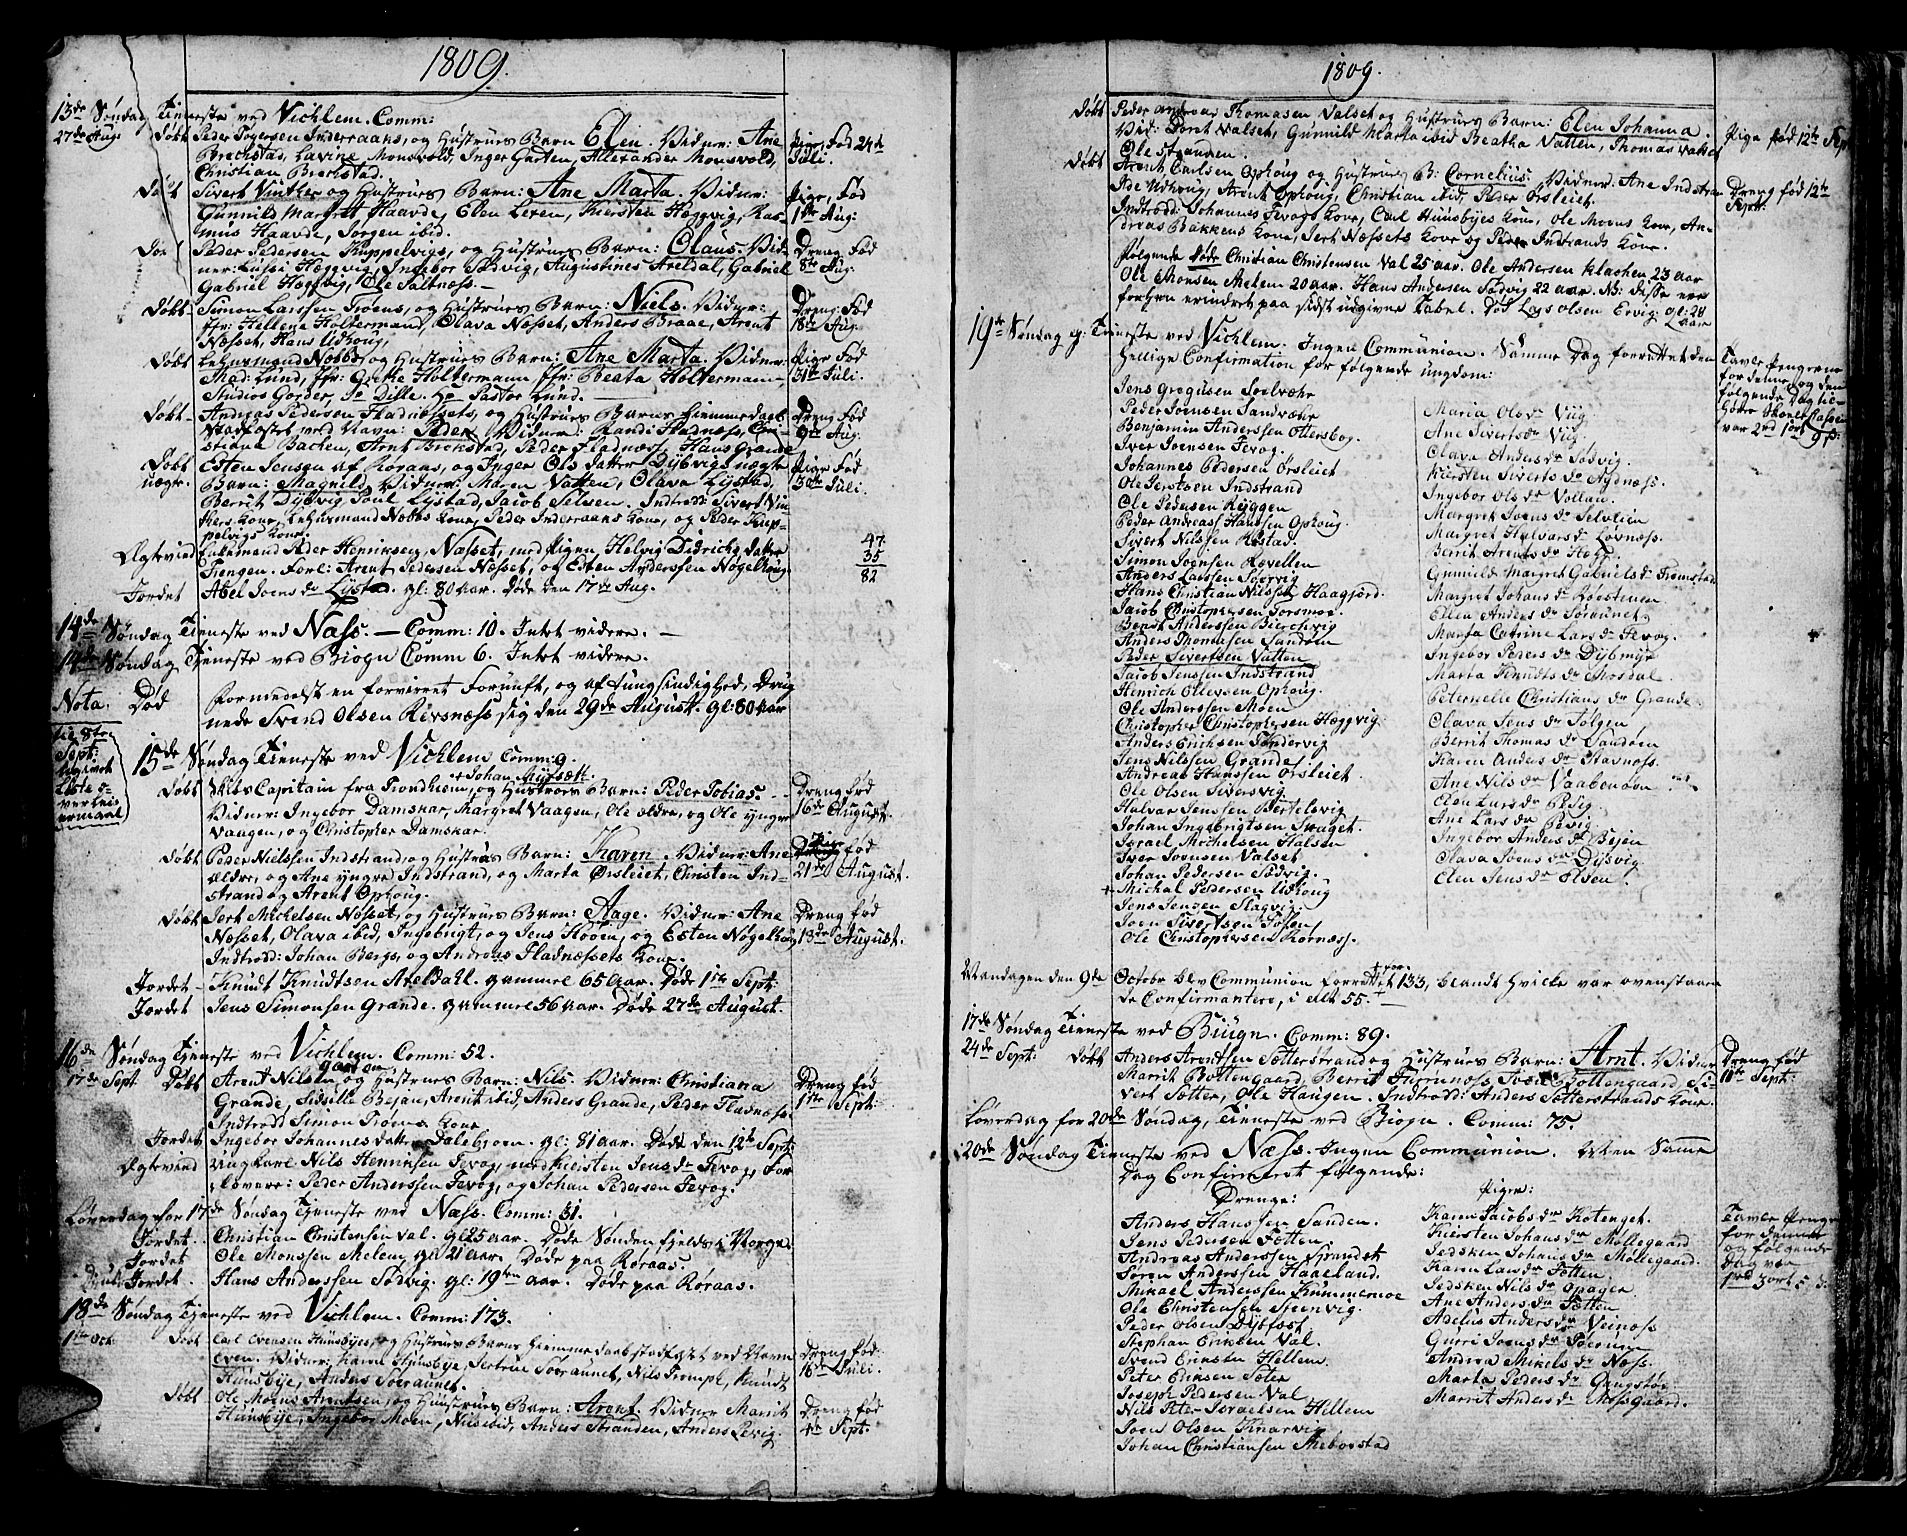 1809.
13de Søndag Tieneste ved Vichlem. Comm:
27de Aug: Døbt Peder Togersen Inderraaks, og Hustrues Barn Elen. Vidner: Ane
Brechstad, Lavine Monsvold, Inger Garten, Allexander Monsvold,
Christian Brechstad.
Pige, Fød 24de
Juli.
Døbt Sivert Vinther og Hustrues Barn: Ane Marta. Vidner:
Gunnild Margrett Haavde, Elen Leren, Kiersten Heggvig, Ras-
mus Haavde, Jørgen ibid.
Pige, Fød
1de Aug:
Peder Pedersen Kuppelvigs, og Hustrues Barn: Olaus. Vid-
ner: Lussi Heggvig, Ingebor Sødvig, Augustines Areldal, Gabriel
Gabriel Heggvig, Ole Saltnæss. —
Dreng Fød
8de Aug:
Døbt Simon Larssen Trøens, og Hustrues Barn: Niels. Vidner:
Jfr: Hellene Holtermand, Olava Næsset, Anders Braae, Arent
Næsset, Hans Udhoug.
Dreng: Fød
18de Aug:
Døbt Lehnsmand Nobbes og Hustrues Barn: Ane Marta. Vidner:
Mad: Lund, Jfr: Grethe Holtermann Jfr: Beata Holtermann
Studios Gorder, Do Dille. Hr Pastor Lund. —
Pige Fød
31te Juli.
Døbt Andreas Pedersen Fladnæssets, og Hustrues Barns hiemmedaabs
Stadfæstet ved Navn: Peder. Vidner: Randi Fladnæss, Chri-
stiana Bachen, Arnt Brekstad, Peder Fladnæss, Hans Grande
Dreng Fød
9de Aug.
Døbt Esten Jensen af Røraas, og Inger Ols Datter Dybvigs uægte
uægte. Barn: Magnild. Vidner: Maren Vatten, Olava Lystad,
Berrit Dybvig, Poul Lystad, Jacob Selsen. Indtrød: Sivert Vin-
thers Kone, Lehnsmand Nobbs Kone, Peder Inderraaks Kone, og Peder Kup-
pelvigs Kone.
Pige Fød
30te Juli.
Ægtevied Enkemand Peder Henriksen, Næsset, med Pigen Helvig Didrichs Datter
Fengen. Forl: Arent Pedersen Næsset, og Esten Anderssen Nøgelhoug
47
35
82
Jordet Abel Joens Dr Lystad. gl: 80 aar. Døde den 17de Aug.
14de Søndag Tieneste ved Næss. — Comm: 10. Intet videre. —
14de Søndag Tjeneste ved Biogn Comm 6. Intet videre.
Nota. Død Formedelst en forvirret Fornuft, og af tungsindighed, Drug
nede Svend Olsen Rivsnæss sig den 29de August. gl: 80 aar
15de Søndag Tieneste ved Vichlem Comm: 9.
+ Johan Mysæth.
Døbt Skibs Capitain fra Trondhiem, og Hustrues Barn: Peder Tobias.
Vidner: Ingebor Damskar, Margret Vaagen, Ole eldre, og Ole yngre
Vaagen, og Christopher Damskar.
Dreng fød
16de August.
Døbt Peder Nielssen Indstrand, og Hustrues Barn: Karen. Vidner: Ane
eldre, og Ane yngre Indstrand, og Marta Ørsleiet, Christen Ind-
strand og Arent Ophoug.
Pige fød
21de August.
Døbt Jert Michelsen Næsset, og Hustrues Barn: Aage. Vidner: Ane
Næsset, Olava ibid, Ingebrigt, og Jens Hoøen, og Esten Nøgelhoug
Indtrød: Johan Bergs, og Andreas Fladnæssets Kone.
Dreng fød
13de August.
Jordet Knudt Knudtsen Areldahl. gammel 65 aar. Døde 1ste Sept:
Jordet Jens Simonsen Grande. gammel 56 aar. Døde 27de August.
16de Søndag Tjeneste ved Vichlem. Comm: 52.
17de Sept. Døbt Arent Nilsen og Hustrues Barn: Nils. Vidner: Christiana
Grande, Sidselle Bejan, Arent ibid, Anders Grande, Peder Fladnæss.
Indtrød Simon Trøens Kone
Dreng fød
1ste Sept:
Jordet Ingebor Johannes datter Dalebjorn. gl: 81 aar. Døde den 12te Sept:
Ægtevied Ungkarl Nils Henrichsen Fevog, med Kiersten Jens Dr Fevog, For
lovere: Peder Anderssen Fevog, og Johan Pedersen Fevog.
Løverdag for 17de Søndag Tjeneste ved Næss. Comm: 31.
Jordet. Christian Christensen Val. gl 25 aar. Døde Sønden fields i Norge.
Jordet Ole Monssen Melem, gl 21 aar. Døde paa Røraas.
Jordet. Hans Anderssen Sødvig. gl: 19ten aar. Døde paa Røraas.
18de Søndag Tjeneste ved Vichlem. Comm: 173.
1ste Oct: Døbt Carl Evensen Huusbyes, og Hustrues Barns hiemmedaab stadfæstet ved Navn
Even. Vidner: Karen Huusbye, Sertroe Søeraunet, Nils Trompt, Knudt
Huusbye, Anders Søeraunet.
Dreng fød:
16de Juli.
Døbt Ole Moens Arentsen, og Hustrues Barn: Arent. Vidner Marrit
Huusbye, Ingebor Moen, Nils ibid, Anders Stranden, Anders Revig.
Dreng fød
4de Sept:
1809.
Døbt Peder Andreas Thomasen Valset og Hustrues Barn: Elen Johanna.
Vid: Dorret Valset, Gunnild Marta ibid Beatha Vatten, Thomas Valset
Ole Stranden.
Pige fød 12te Sept
Døbt Arent Carlsen Ophoug og Hustrues B: Cornelius. Vidner. Ane Indstran
Ade Udhoug, Arent Ophoug, Christian ibid, Peder Ørsleiet.
Indtrød: Johannes Fevogs Kone, Carl Huusbyes Kone, Ole Moens Kone, An-
dreas Bakkens Kone, Jert Næssets Kone og Peder Indstrands Kone.
Dreng fød 12te
Sept:
Følgende Døde Christian Christensen Val 25 aar. Ole Andersen Klachen 23 aar
Ole Monsen Melem 20 aar. Hans Andersen Sødvig 22 aar. NB: disse ere
forhen erindret paa sidst udgivne Tabel. Død Lars Olsen Ervig: gl: 28
aar
19de Søndag e: Tjeneste ved Vichlem. Ingen Communion. Samme Dag forrettet den
hellige Confirmation for følgende ungdom:
Tavle Pengene
for denne, og den
følgende Dag til-
hører Skole Cassen
var 2rd 1ort 9 s:
Jens Gregusen Soelvehr
Peder Joensen Sandvehr
Benjamin Anderssen Ottersbog.
Iver Joensen Fevog.
Johannes Pedersen Ørsleiet
Ole Jertsen Indstrand
Ole Pedersen Ryggen
Peder Andreass Hanssen Ophoug.
Sivert Nilssen Røstad.
Simon Joensen Revellen
Anders Larssen Soervig
Hans Christian Nilssen Haagjord.
Jacob Christophersen Torsmoe.
Bendt Anderssen Bierchvig
Anders Thomassen Sandøen
Peder Sivertsen Vatten
Jacob Jenssen Indstrand
Henrich Ollevsen Ophoug.
Ole Anderssen Moen
Christopher Christophersen Heggvig.
Anders Erichsen Søndervig
Jens Nilssen Grande
Andreas Hanssen Ørsleiet.
Ole Olsen Siversvig
Halvor Jenssen Bertelsvig
Johan Ingebrigtsen Skaget.
Israel Michelssen Halsen
Iver Joensen Valset
Johan Pedersen Sødvig.
+ Michal Pedersen Udhoug
Jens Jensen Slagvig.
Joen Sivertsen Tossen
Ole Christophersen Rornæss.
Maria Ols Dr Viig.
Ane Siverts Dr Viig.
Olava Anders Dr Sødvig.
Kiersten Siverts Dr Nydnæss.
Ingebor Ols Dr Vollan.
Margret Joens Dr Selvlien
Margret Halvars Dr Løvnæss.
Berrit Arents Dr Hogs.
Gunnild Margret Gabriels Dr Fromstad
Margret Johans Dr Koestenen
Ellen Anders Dr Søraunet.
Marta Catrine Lars Dr Fevog.
Ingebor Peders Dr Dybmyr
Marta Knudts Dr Mosdal.
Peternelle Christians Dr Grande.
Olava Jens Dr Tolgen
Berrit Thomas Dr Sandøen
Karen Anders Dr Stavnøss.
Ane Nils Dr Vaabenøen
Elen Lars Dr Revig.
Ane Lars Dr Revig.
Ingebor Anders Dr Bejen
Olava Joens Dr Dybvig
Elen Jens Dr Olsen.
Mandagen den 9de Octobr blev Communion forrettet for 133, blandt hvilke var ovenstaaen
de Confirmantere, i alt 55. —
17de Søndag Tieneste ved Biugn. Comm: 89.
24de Sept: Døbt Anders Arentssen Sætterstrand og Hustrues Barn: Arnt. Vidner
Marrit Bottengaard, Berrit Fururnøss, Tver Bottengaard, Si-
vert Sætter, Ole Haugen. Indtrød: Anders Sætterstrands Kone.
Dreng fød
10de Sept:
Løverdag for 20de Søndag, Tieneste ved Biogn. Comm: 75.
20de Søndag Tjeneste ved Næss. Ingen Communion. Men Samme
Dag Confirmeret følgende:
Drenge:
Anders Hanssen Sanden.
Jens Pedersen Totten.
Andreas Anderssen Grandet
Søren Anderssen Haaeland.
Mikael Anderssen Krummemoe
Ole Christensen Steenvig.
Peder Olsen Dybfæst.
Stephan Eriksen Val.
Svend Eriksen Hellem.
Peter Eriksen Sæter
Joseph Pedersen Val
Nils Peter Israelsen Hellem
Joen Olsen Knarvig
Johan Christiansen Meborstad
Piger:
Karen Jacobs Dr Kotenget.
Kiersten Johans Dr Møllegaard
Sedsken Johans Dr Møllegaard.
Karen Lars Dr Totten.
Sedsken Nils Dr Opager
Ane Anders Dr Totten
Adelus Anders Dr Veinøss
Gurri Joens Dr Boerum
Andrea Mikels Dr Næss.
Marta Peders Dr Gengstøe
Marrit Anders Dr Mossgaard.
Tavle Penge
for denne
og følgende
Dag var
1rd 3ort 5 s.